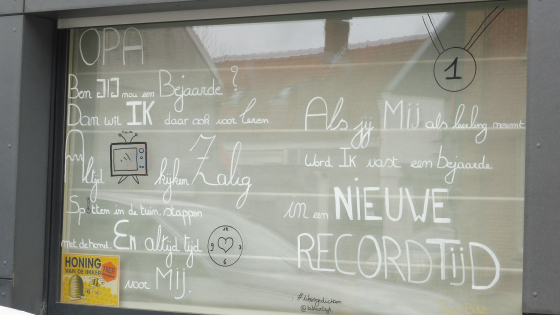 OPA
Ben JIJ nou een Bejaarde?
Dan wil IK daar ook voor leren
Altijd kijken Zalig
Spitten in de tuin, stappen
met de hond. En altijd tijd
12 3 6 9
voor Mij.
HONING
VAN DE IMKER
1
Als jij Mij als leerling neemt
Word IK vast een bejaarde
in een NIEUWE
RECORDTIJD